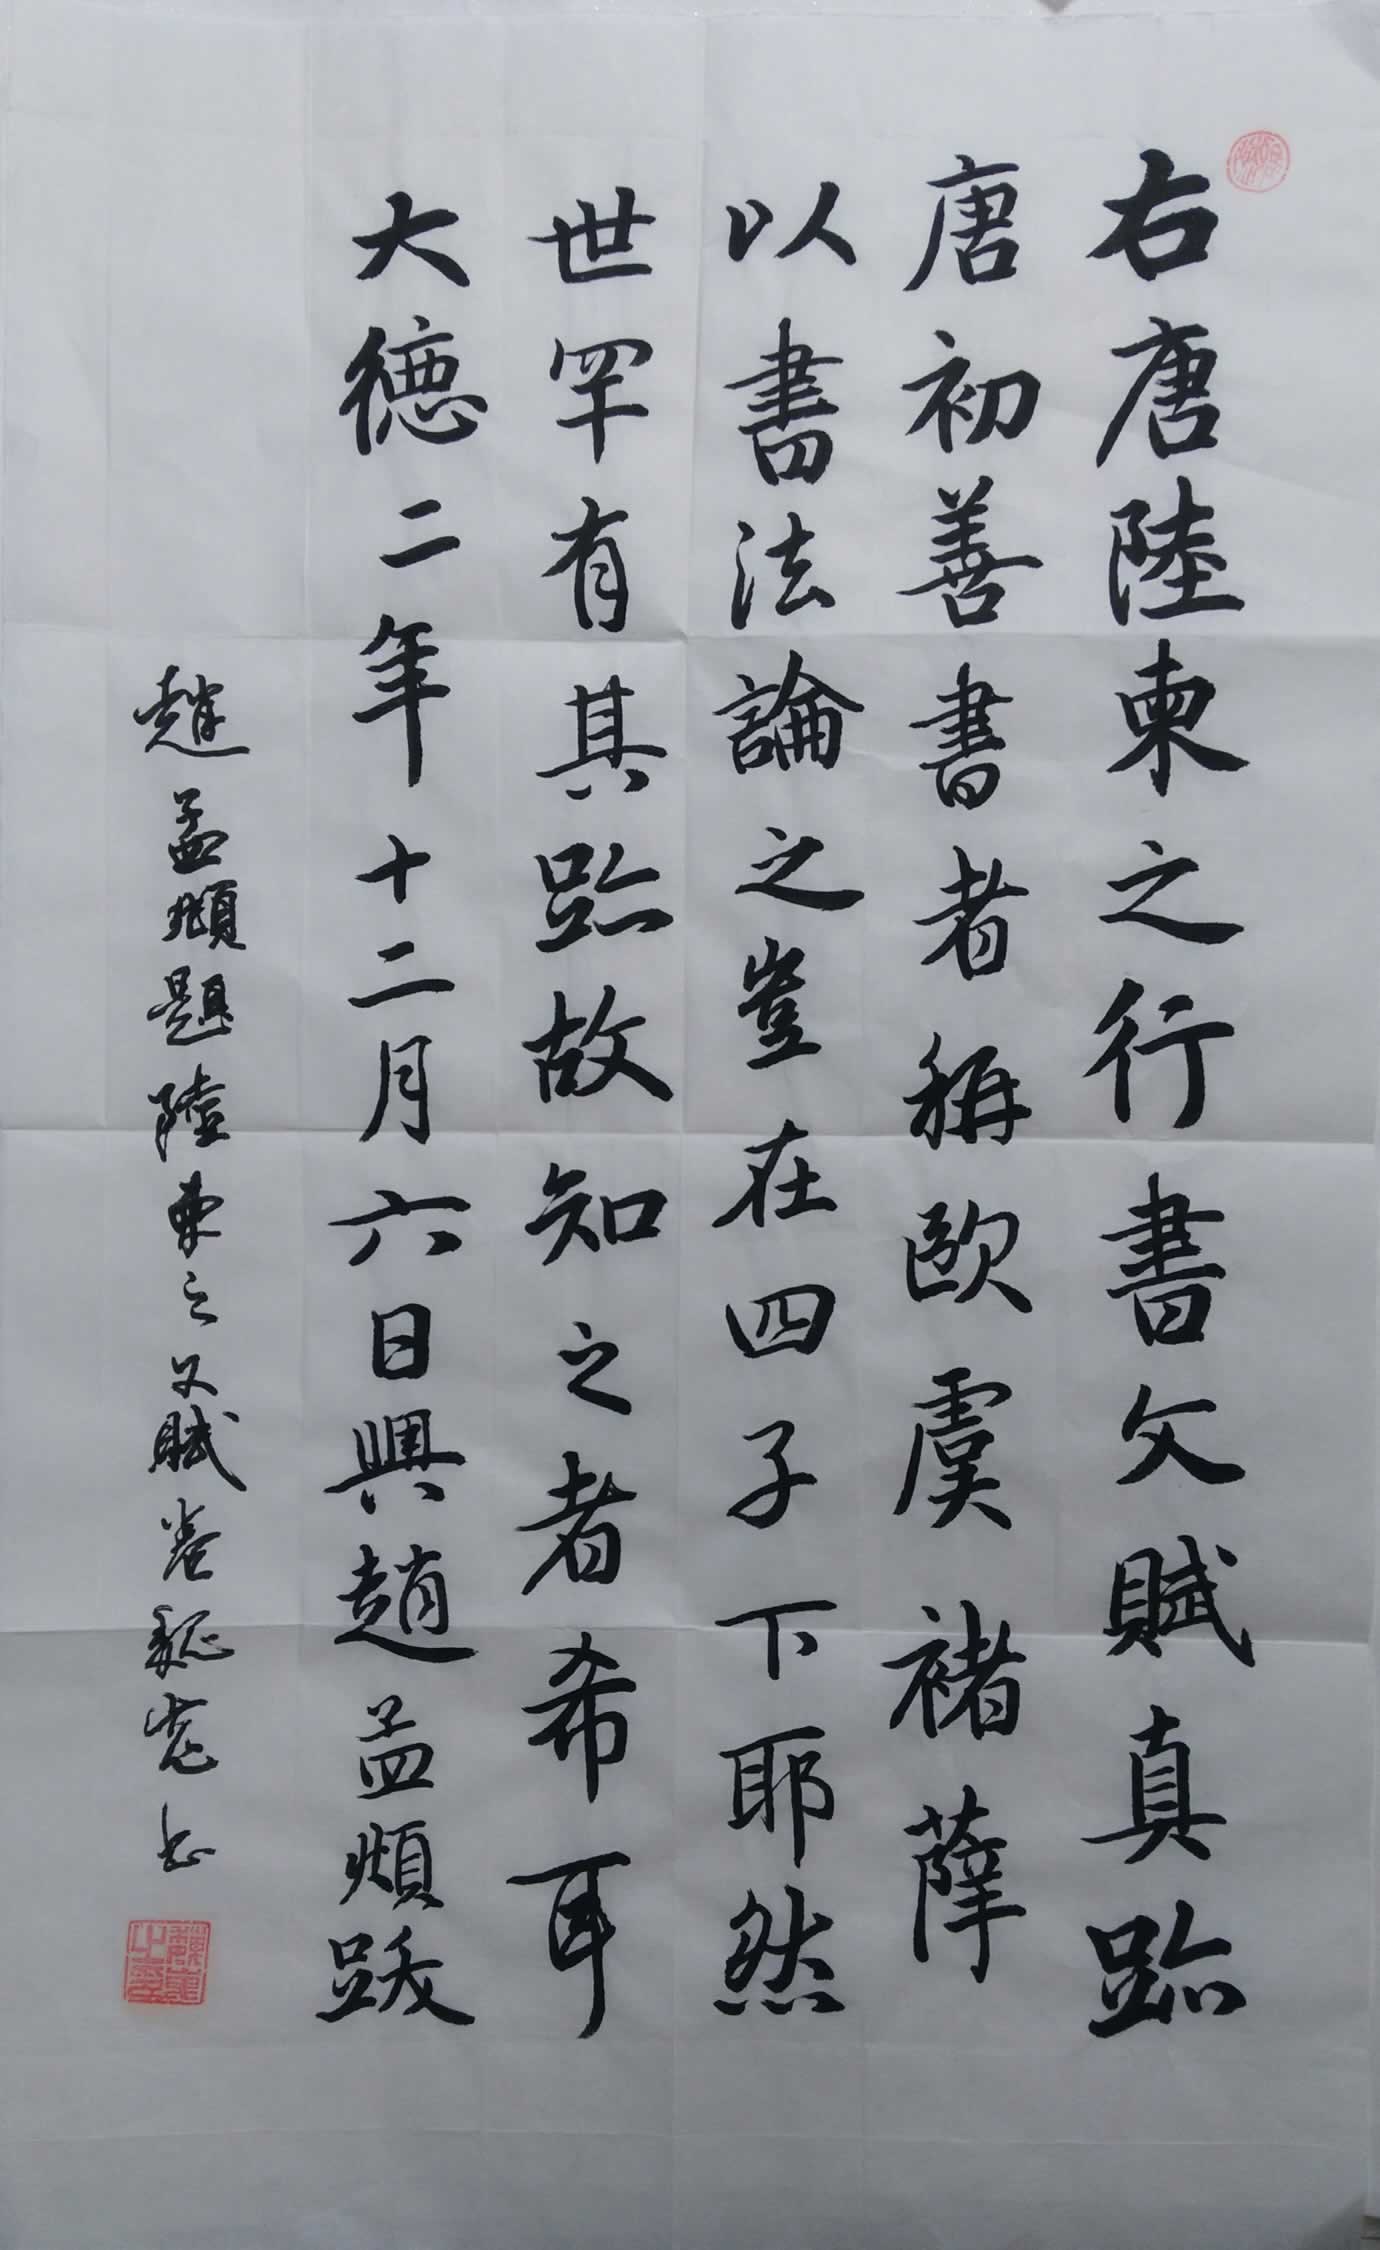 右唐陸柬之行書文賦真跡
唐初善書者稱歐虞褚薛
以書法論之豈在四子下耶然
世罕有其跡故知之者希耳
大德二年十二月六日吳興趙孟頫跋
趙孟頫題陸柬之文賦卷